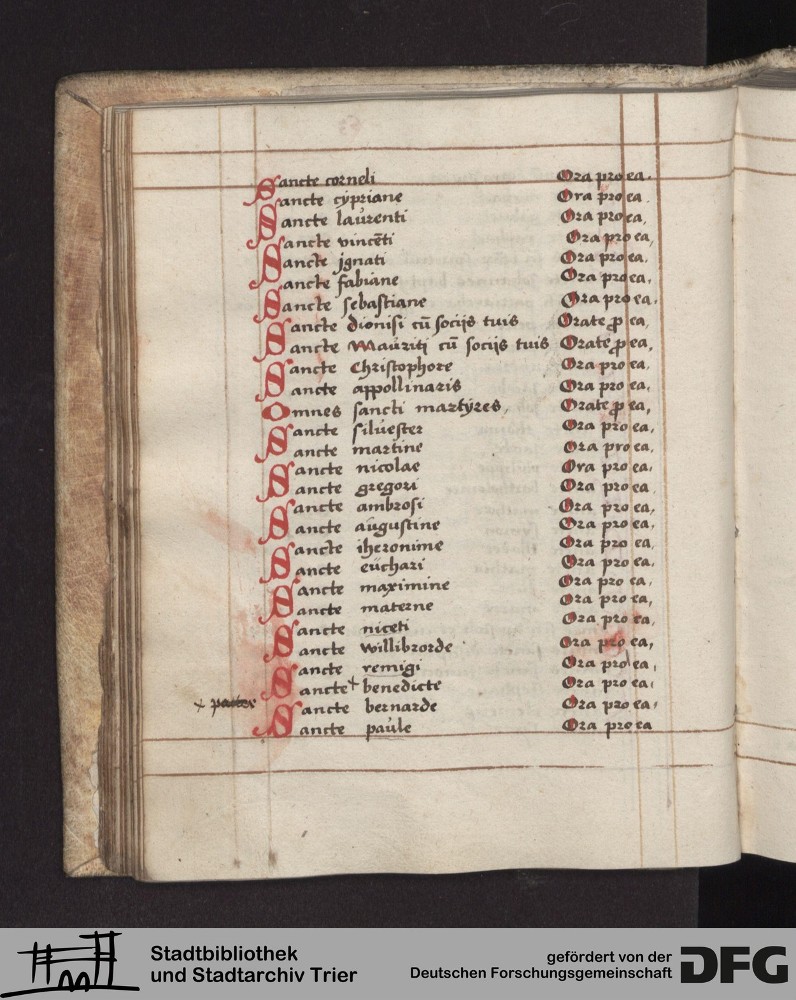 Sancte corneli Ora pro ea.
Sancte cÿpriane Ora pro ea,
Sancte laurenti Ora pro ea,
Sancte vincēti Ora pro ea,
Sancte jgnati Ora pro ea,
Sancte fabiane Ora pro ea.
Sancte sebastiane Ora pro ea.
Sancte dionisi cū socijs tuis Orate ꝓ ea,
Sancte Mauriti cū socijs tuis Orate ꝓ ea,
Sancte Christophore Ora pro ea,
Sancte appollinaris Ora pro ea,
Omnes sancti martÿres, Orate ꝓ ea,
Sancte siluester Ora pro ea,
Sancte martine Ora pro ea.
Sancte nicolae Ora pro ea,
Sancte gregori Ora pro ea,
Sancte ambrosi Ora pro ea,
Sancte augustine Ora pro ea,
Sancte iheronime Ora pro ea,
Sancte euchari Ora pro ea,
Sancte maximine Ora pro ea,
Sancte materne Ora pro ea,
Sancte niceti Ora pro ea,
Sancte willibrorde Ora pro ea,
Sancte remigi Ora pro ea,
Sancte + benedicte Ora pro ea,
+ pater
Sancte bernarde Ora pro ea.
Sancte paule Ora pro ea
Stadtbibliothek
und Stadtarchiv Trier
gefördert von der
Deutschen Forschungsgemeinschaft
DFG